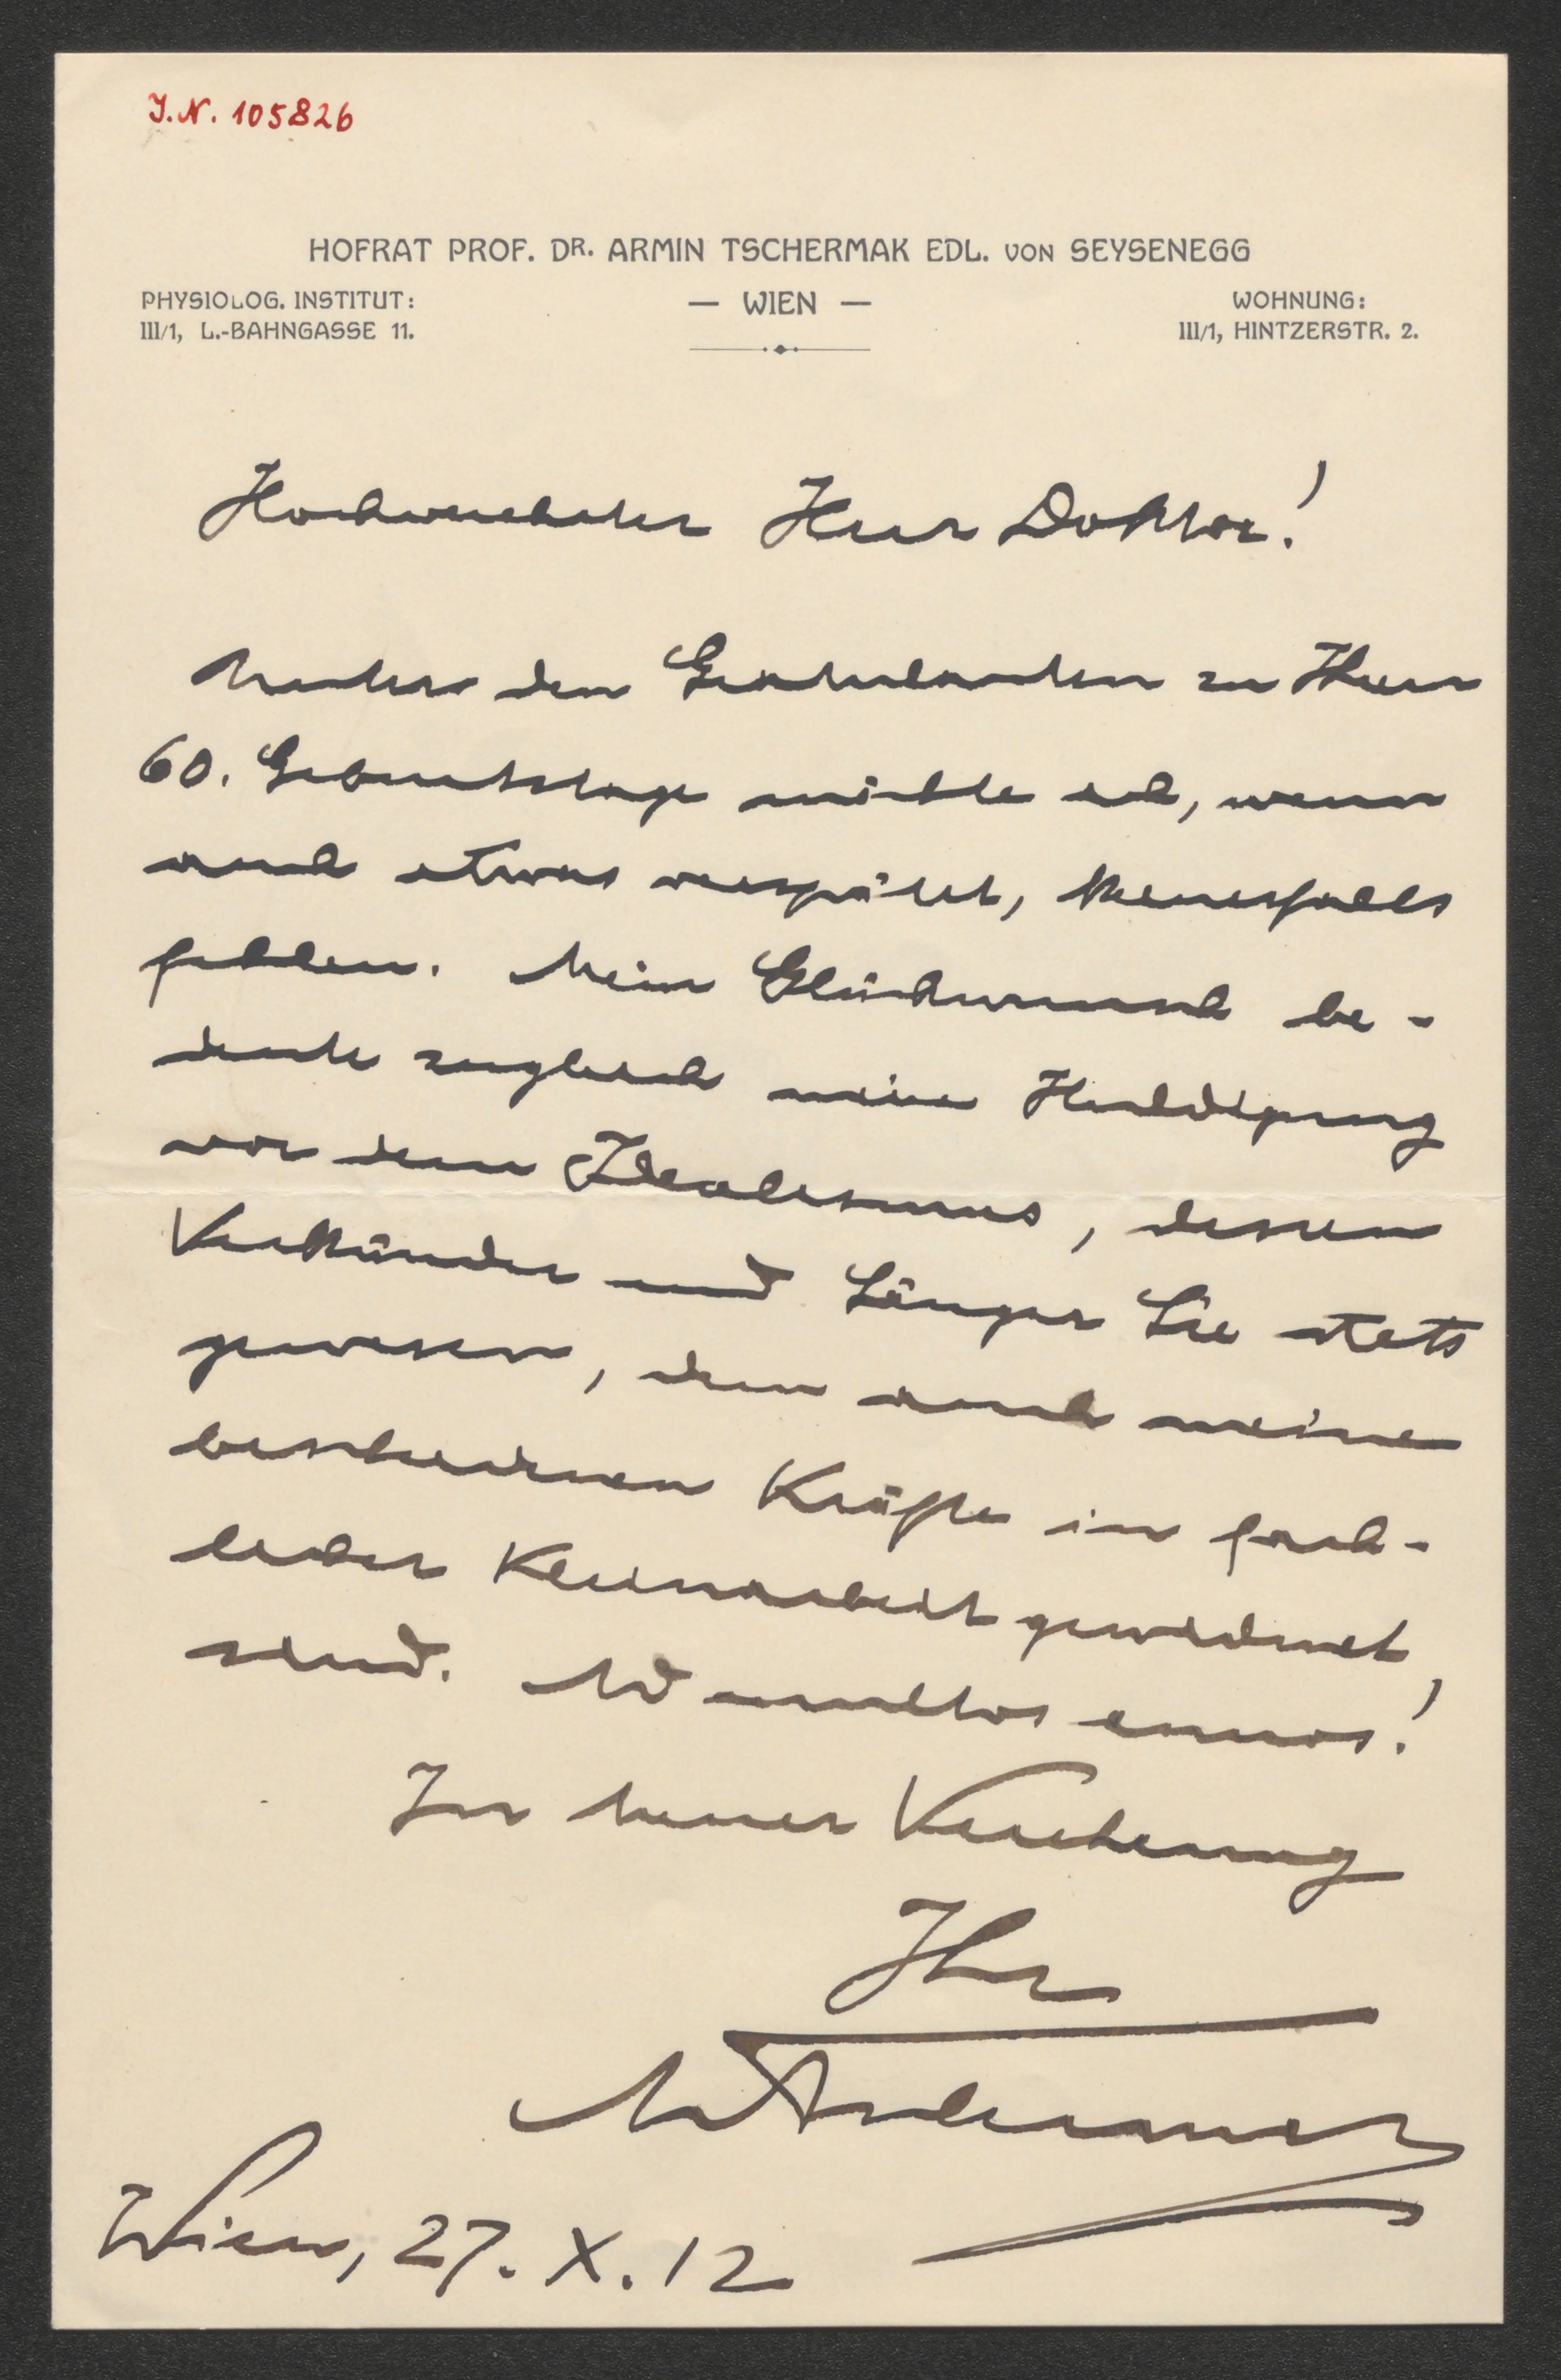 J.N. 105826
HOFRAT PROF. DR. ARMIN TSCHERMAK EDL. VON SEYSENEGG
PHYSIOLOG. INSTITUT: — WIEN — WOHNUNG:
III/1, L.-BAHNGASSE 11. III/1, HINTZERSTR. 2.
Hochverehrter Herr Doktor!
Unter den Gratulanten zu Ihrem
60. Geburtstage möchte ich, wenn
auch etwas verspätet, keinesfalls
fehlen. Mein Glückwunsch be-
deute zugleich meine Huldigung
vor dem Idealismus, dessen
Verkünder und Sänger Sie stets
gewesen, dem auch meine
bescheidenen Kräfte in fach-
licher Kleinarbeit gewidmet
sind. Ad multos annos!
In treuer Verehrung
Ihr
A Tschermak
Wien, 27. X. 12